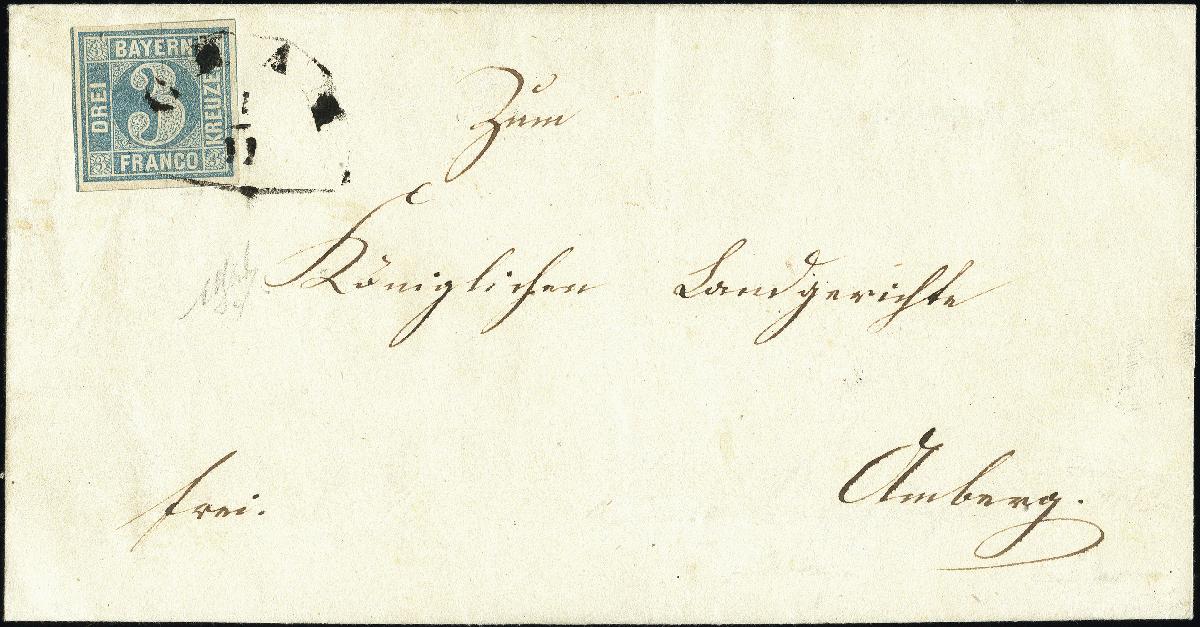 BAYERN
DREI
3
KREUZER
FRANCO
1
11
Zum
Königlichen Landgerichte
Amberg.
frei.